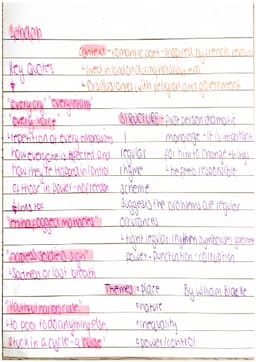 London
Context - romantic poet - inspired by french revolution
↳ lived in london during
Key Quotes
↳ disillusioned with religion and government
"every cry" "every infant"
"every voice"
Structure - first person dramatic
↳ repetition of every emphasises
monologue - it is important
how everyone is affected and
regular
for him to change things
how they're trapped in control
rhyme
↳ he feels responsible
of those in power - no freedom
scheme
suggests the problems are regular
"mind forged manacles"
occurances
↳ tight regular rhythm symbolises
"hapless soldiers sigh"
power - punctuation - corruption
↳ sadness or last breath
Themes
↳ place
By William Blake
"youthful harlots curse"
↳ nature
↳ to poor to do anything else
↳ inequality
stuck in a cycle - a curse
↳ power/control